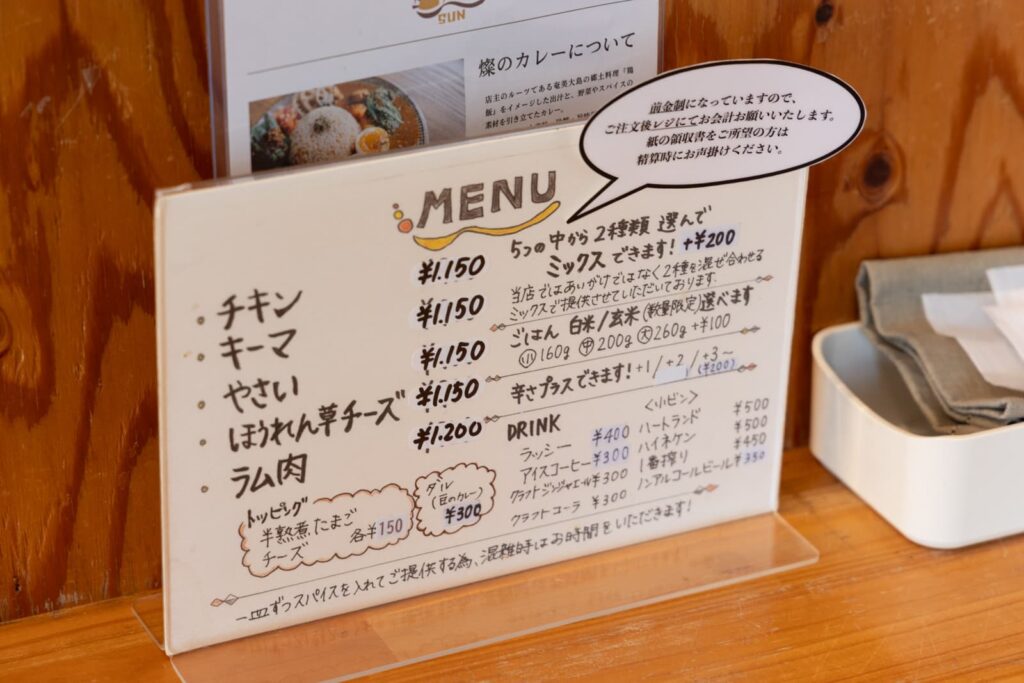 SUN
燦のカレーについて
店主のルーツである奄美大島の郷土料理「鶏
飯」をイメージした出汁と、野菜やスパイスの
素材を引き立てたカレー。
前金制になっていますので、
ご注文後レジにてお会計お願いいたします。
紙の領収書をご所望の方は
精算時にお声掛けください。
MENU
・チキン ¥1.150
・キーマ ¥1.150
・やさい ¥1.150
・ほうれん草チーズ ¥1.150
・ラム肉 ¥1.200
トッピング
半熟煮たまご
チーズ 各¥150
ダル
(豆のカレー)
¥300
5つの中から2種類 選んで
ミックスできます! +¥200
当店ではあいがけではなく2種を混ぜ合わせる
ミックスで提供させていただいております。
ごはん 白米/玄米(数量限定)選べます
小160g 中200g 大260g +¥100
辛さプラスできます! +1/+2/+3~
(¥200)
DRINK
ラッシー ¥400
アイスコーヒー ¥300
クラフトジンジャエール ¥300
クラフトコーラ ¥300
<小ビン>
ハートランド ¥500
ハイネケン ¥500
1番搾り ¥450
ノンアルコールビール ¥350
一皿ずつスパイスを入れてご提供する為、混雑時はお時間をいただきます!